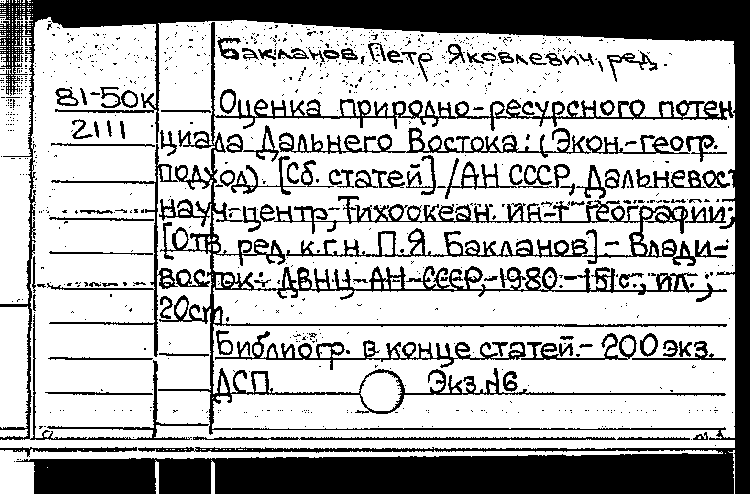 Бакланов, Петр Яковлевич, ред.
81-50к
2111
Оценка природно-ресурсного потен
циала Дальнего Востока: (Экон.-геогр.
подход). [Сб. статей] / АН СССР, Дальневост
науч. центр, Тихоокеан. ин-т географии;
[Отв. ред. к.г.н. П.Я. Бакланов] - Влади-
восток: ДВНЦ АН СССР, 1980. - 151 с., ил.;
20 см.
Библиогр. в конце статей. - 200 экз.
ДСП. Экз. №6.